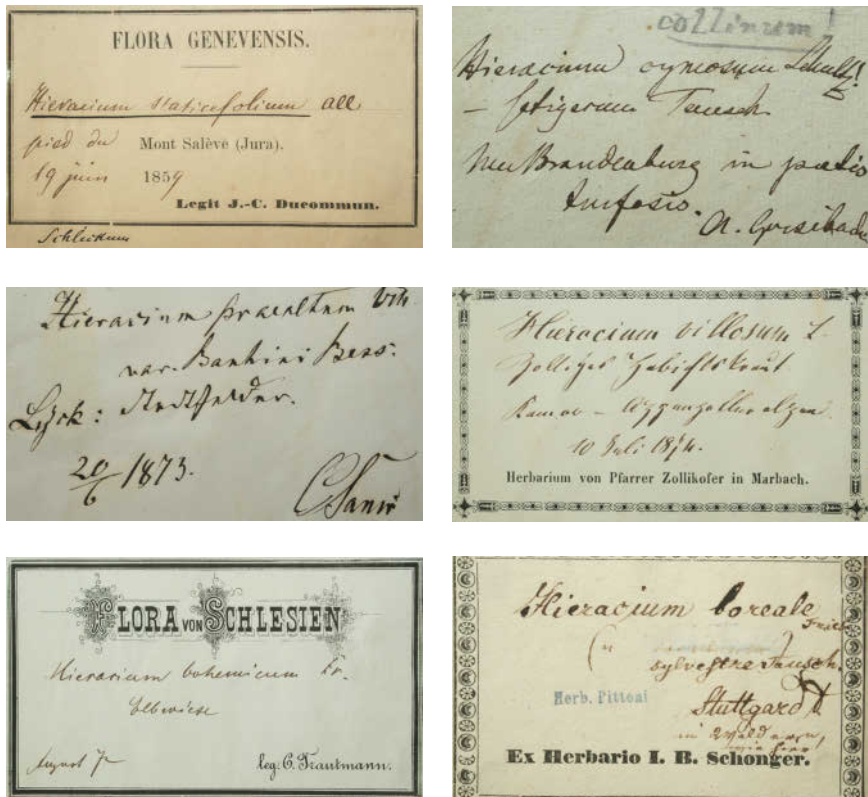 FLORA GENEVENSIS.
Hieracium staticefolium all
pied du Mont Salève (Jura).
19 juin 1859
Legit J.-C. Ducommun.
Schlickum
collinum!
Hieracium cymosum Schultz!
— setigerum Tausch.
Neu Brandenburg in pratis
A. Grisebach
Hieracium praealtum Vill.
var. Bauhini Bess.
Lyck:
20/6 1873.
C Sanio
Hieracium villosum L.
Zottiges Habichtskraut
Kamor – Appenzelleralpen
10 Juli 1874.
Herbarium von Pfarrer Zollikofer in Marbach.
FLORA VON SCHLESIEN
Hieracium bohemicum Fr.
Elbwiese
August 7
leg. C. Trautmann.
Hieracium boreale
Fries
sylvestre Tausch.
Herb. Pittoni
Stuttgardt
in Wäldern,
Ex Herbario I. B. Schonger.